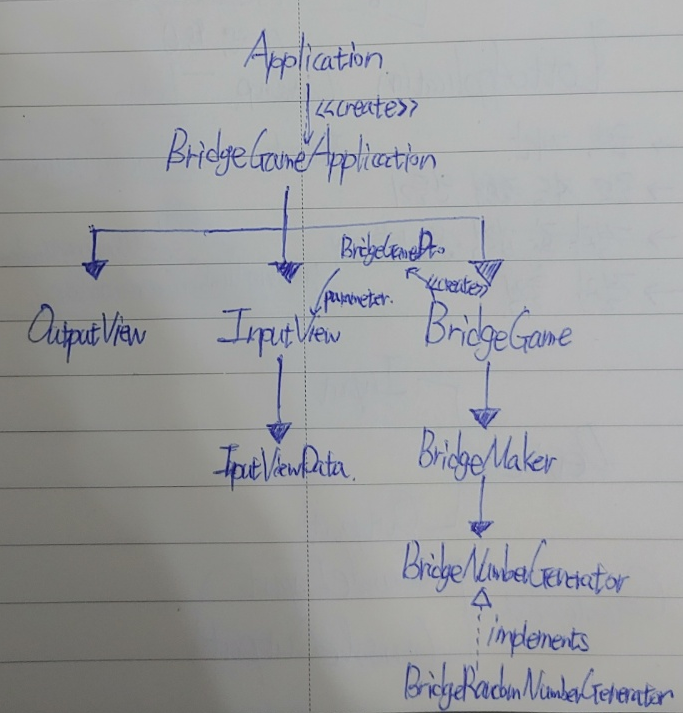 Application
<<create>>
BridgeGameApplication
BridgeGameDto
<<create>>
parameter.
OutputView
InputView
BridgeGame
InputViewData.
BridgeMaker
BridgeNumberGenerator
implements
BridgeRandomNumberGenerator